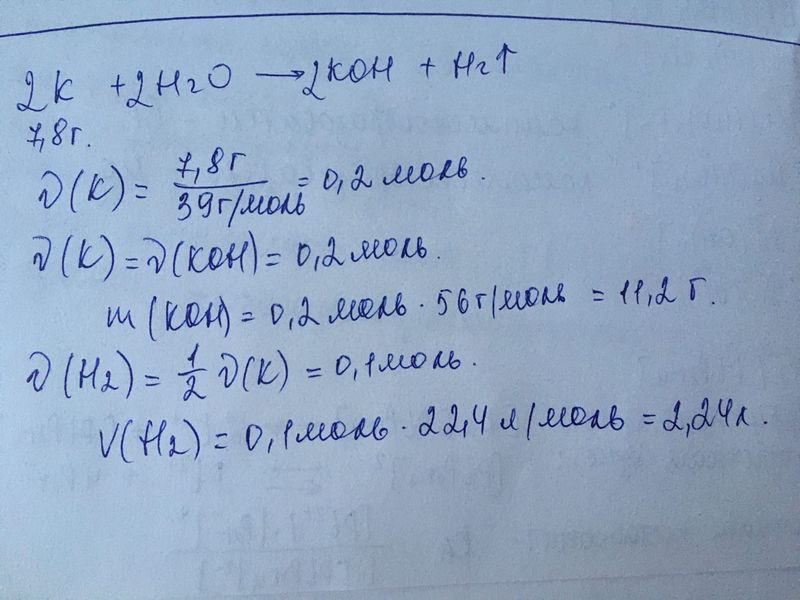 2K + 2H₂O → 2KOH + H₂↑
7,8г.
ν(K) = 7,8г / 39г/моль = 0,2 моль.
ν(K) = ν(KOH) = 0,2 моль.
m(KOH) = 0,2 моль · 56г/моль = 11,2 г.
ν(H₂) = 1/2 ν(K) = 0,1 моль.
V(H₂) = 0,1 моль · 22,4 л/моль = 2,24л.